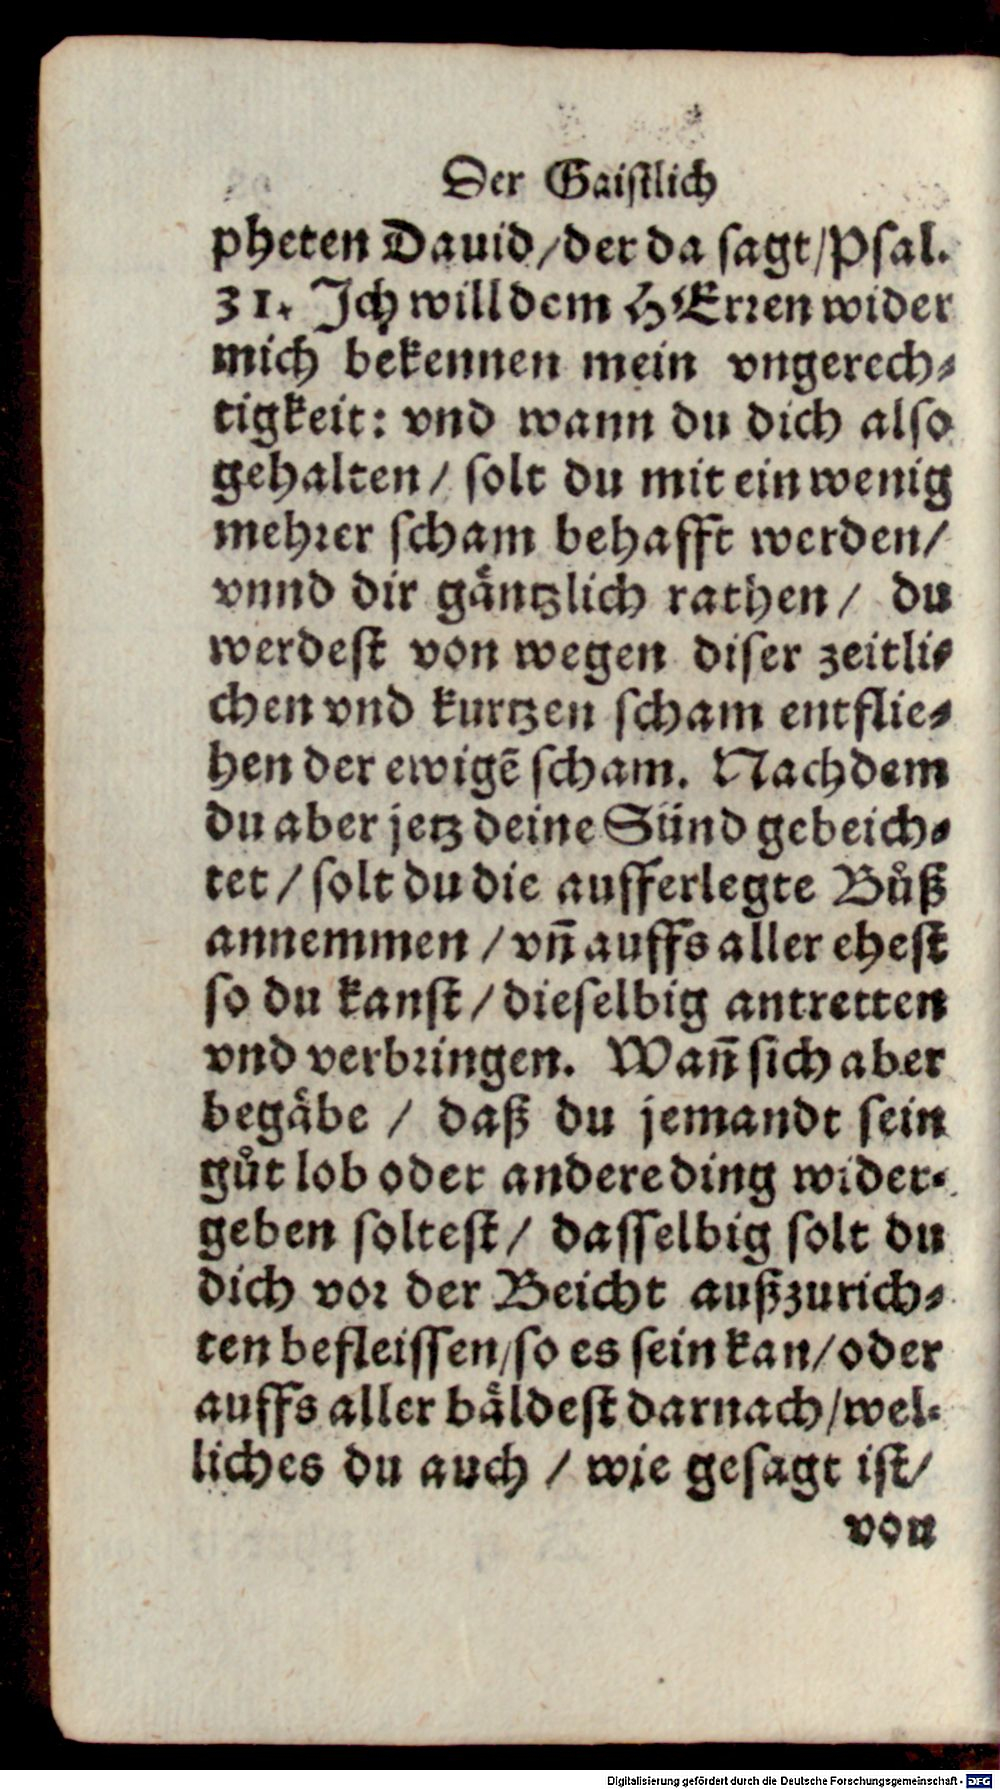 Der Gaistlich
pheten Dauid/der da sagt/Psal.
31. Jch will dem HErren wider
mich bekennen mein vngerech⸗
tigkeit: vnd wann du dich also
gehalten/ solt du mit ein wenig
mehrer scham behafft werden/
vnnd dir gaͤntzlich rathen/ du
werdest von wegen diser zeitli⸗
chen vnd kurtzen scham entflie⸗
hen der ewigẽ scham. Nachdem
du aber jetz deine Sünd gebeich⸗
tet/ solt du die aufferlegte Bůß
annemmen/ vñ auffs aller ehest
so du kanst/ dieselbig antretten
vnd verbringen. Wañ sich aber
begaͤbe/ daß du jemandt sein
gůt lob oder andere ding wider⸗
geben soltest/ dasselbig solt du
dich vor der Beicht außzurich⸗
ten befleissen/so es sein kan/oder
auffs aller baͤldest darnach/wel⸗
liches du auch/ wie gesagt ist/
von
Digitalisierung gefördert durch die Deutsche Forschungsgemeinschaft - DFG